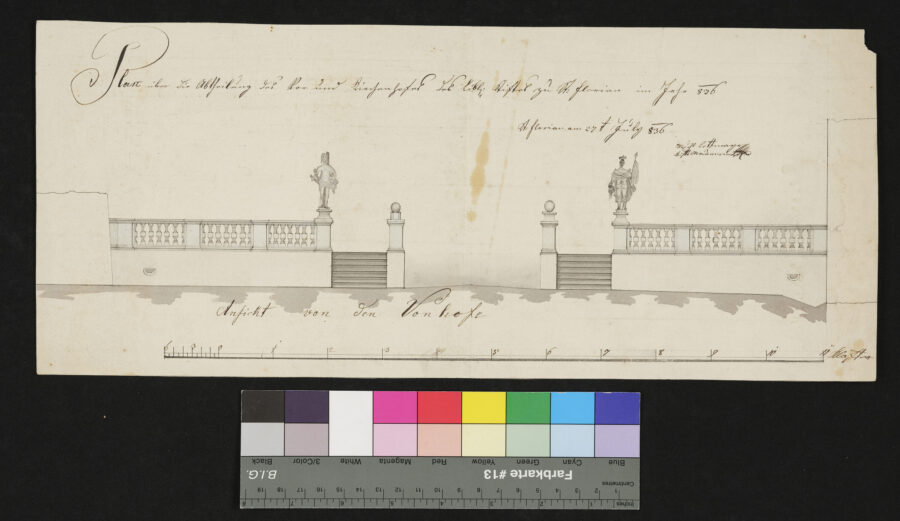 Plan über die Abtheilung des Vor und Kirchenhofes des löbl. Stiftes zu St Florian im Jahr 836
St Florian am 27t July 836
Ansicht von den Vorhofe
1 2 3 4 5 6 7 8 9 10 11 Klafter
Black 3/Color White Magenta Red Yellow Green Cyan Blue
B.I.G. Farbkarte #13 Centimetres
19 18 17 16 15 14 13 12 11 10 9 8 7 6 5 4 3 2 1
Inches